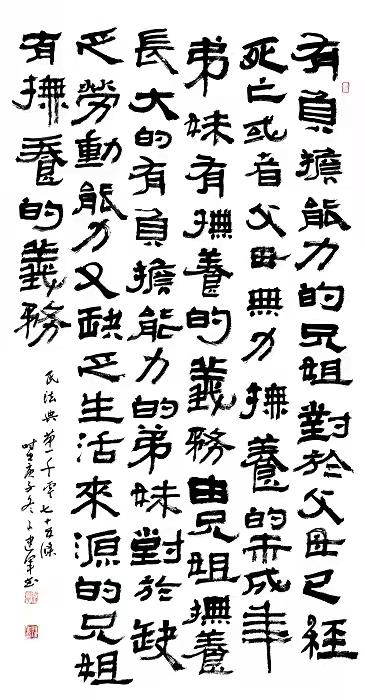 有負擔能力的兄姐對於父母已經
死亡或者父母無力撫養的未成年
弟妹有撫養的義務由兄姐撫養
長大的有負擔能力的弟妹對於缺
乏勞動能力又缺乏生活來源的兄姐
有撫養的義務
民法典第一千零七十五條
庚子冬建軍書